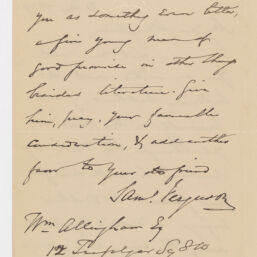 you as something even better,
a fine young man of
good promise in other things
besides literature. Give
him, pray, your favourable
consideration, & add another
favor to your old friend
Saml. Ferguson
Wm Allingham Esq
12 Trafalgar Sq SW